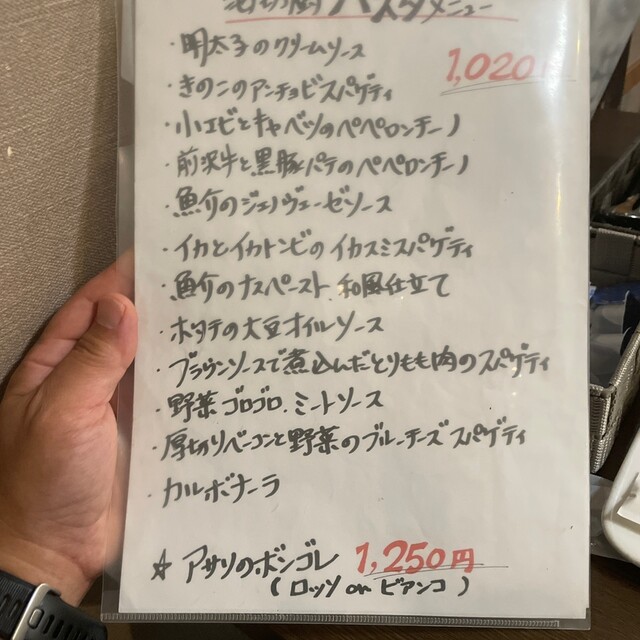 パスタメニュー
・明太子のクリームソース
1,020
・きのこのアンチョビスパゲティ
・小エビとキャベツのペペロンチーノ
・前沢牛と黒豚パテのペペロンチーノ
・魚介のジェノヴェーゼソース
・イカとイカトンビのイカスミスパゲティ
・魚介のナスペースト 和風仕立て
・ホタテの大豆オイルソース
・ブラウンソースで煮込んだとりもも肉のスパゲティ
・野菜ゴロゴロ.ミートソース
・厚切りベーコンと野菜のブルーチーズスパゲティ
・カルボナーラ
☆ アサリのボンゴレ 1,250円
(ロッソ or ビアンコ)